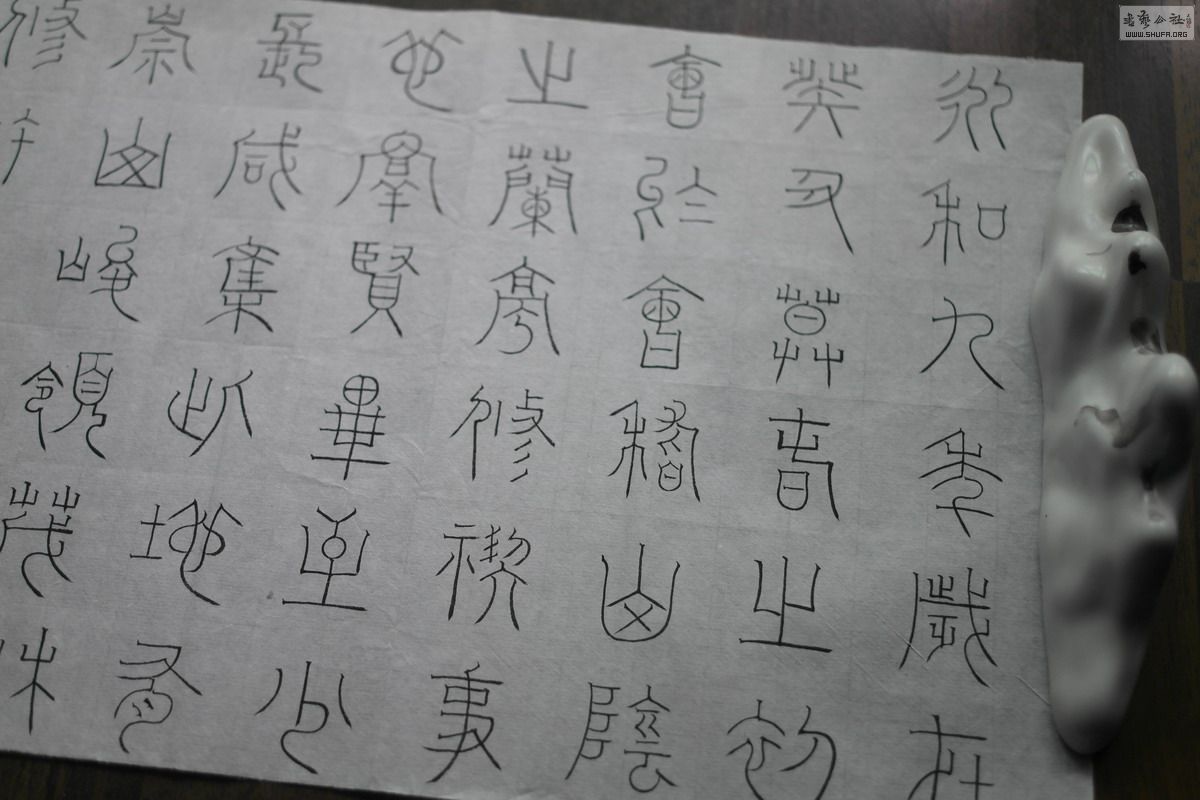 永和九年歲在
癸丑暮春之初
會於會稽山陰
之蘭亭修禊事
也群賢畢至少
長咸集此地有
崇山峻領茂林
修竹
書藝公社
WWW.SHUFA.ORG